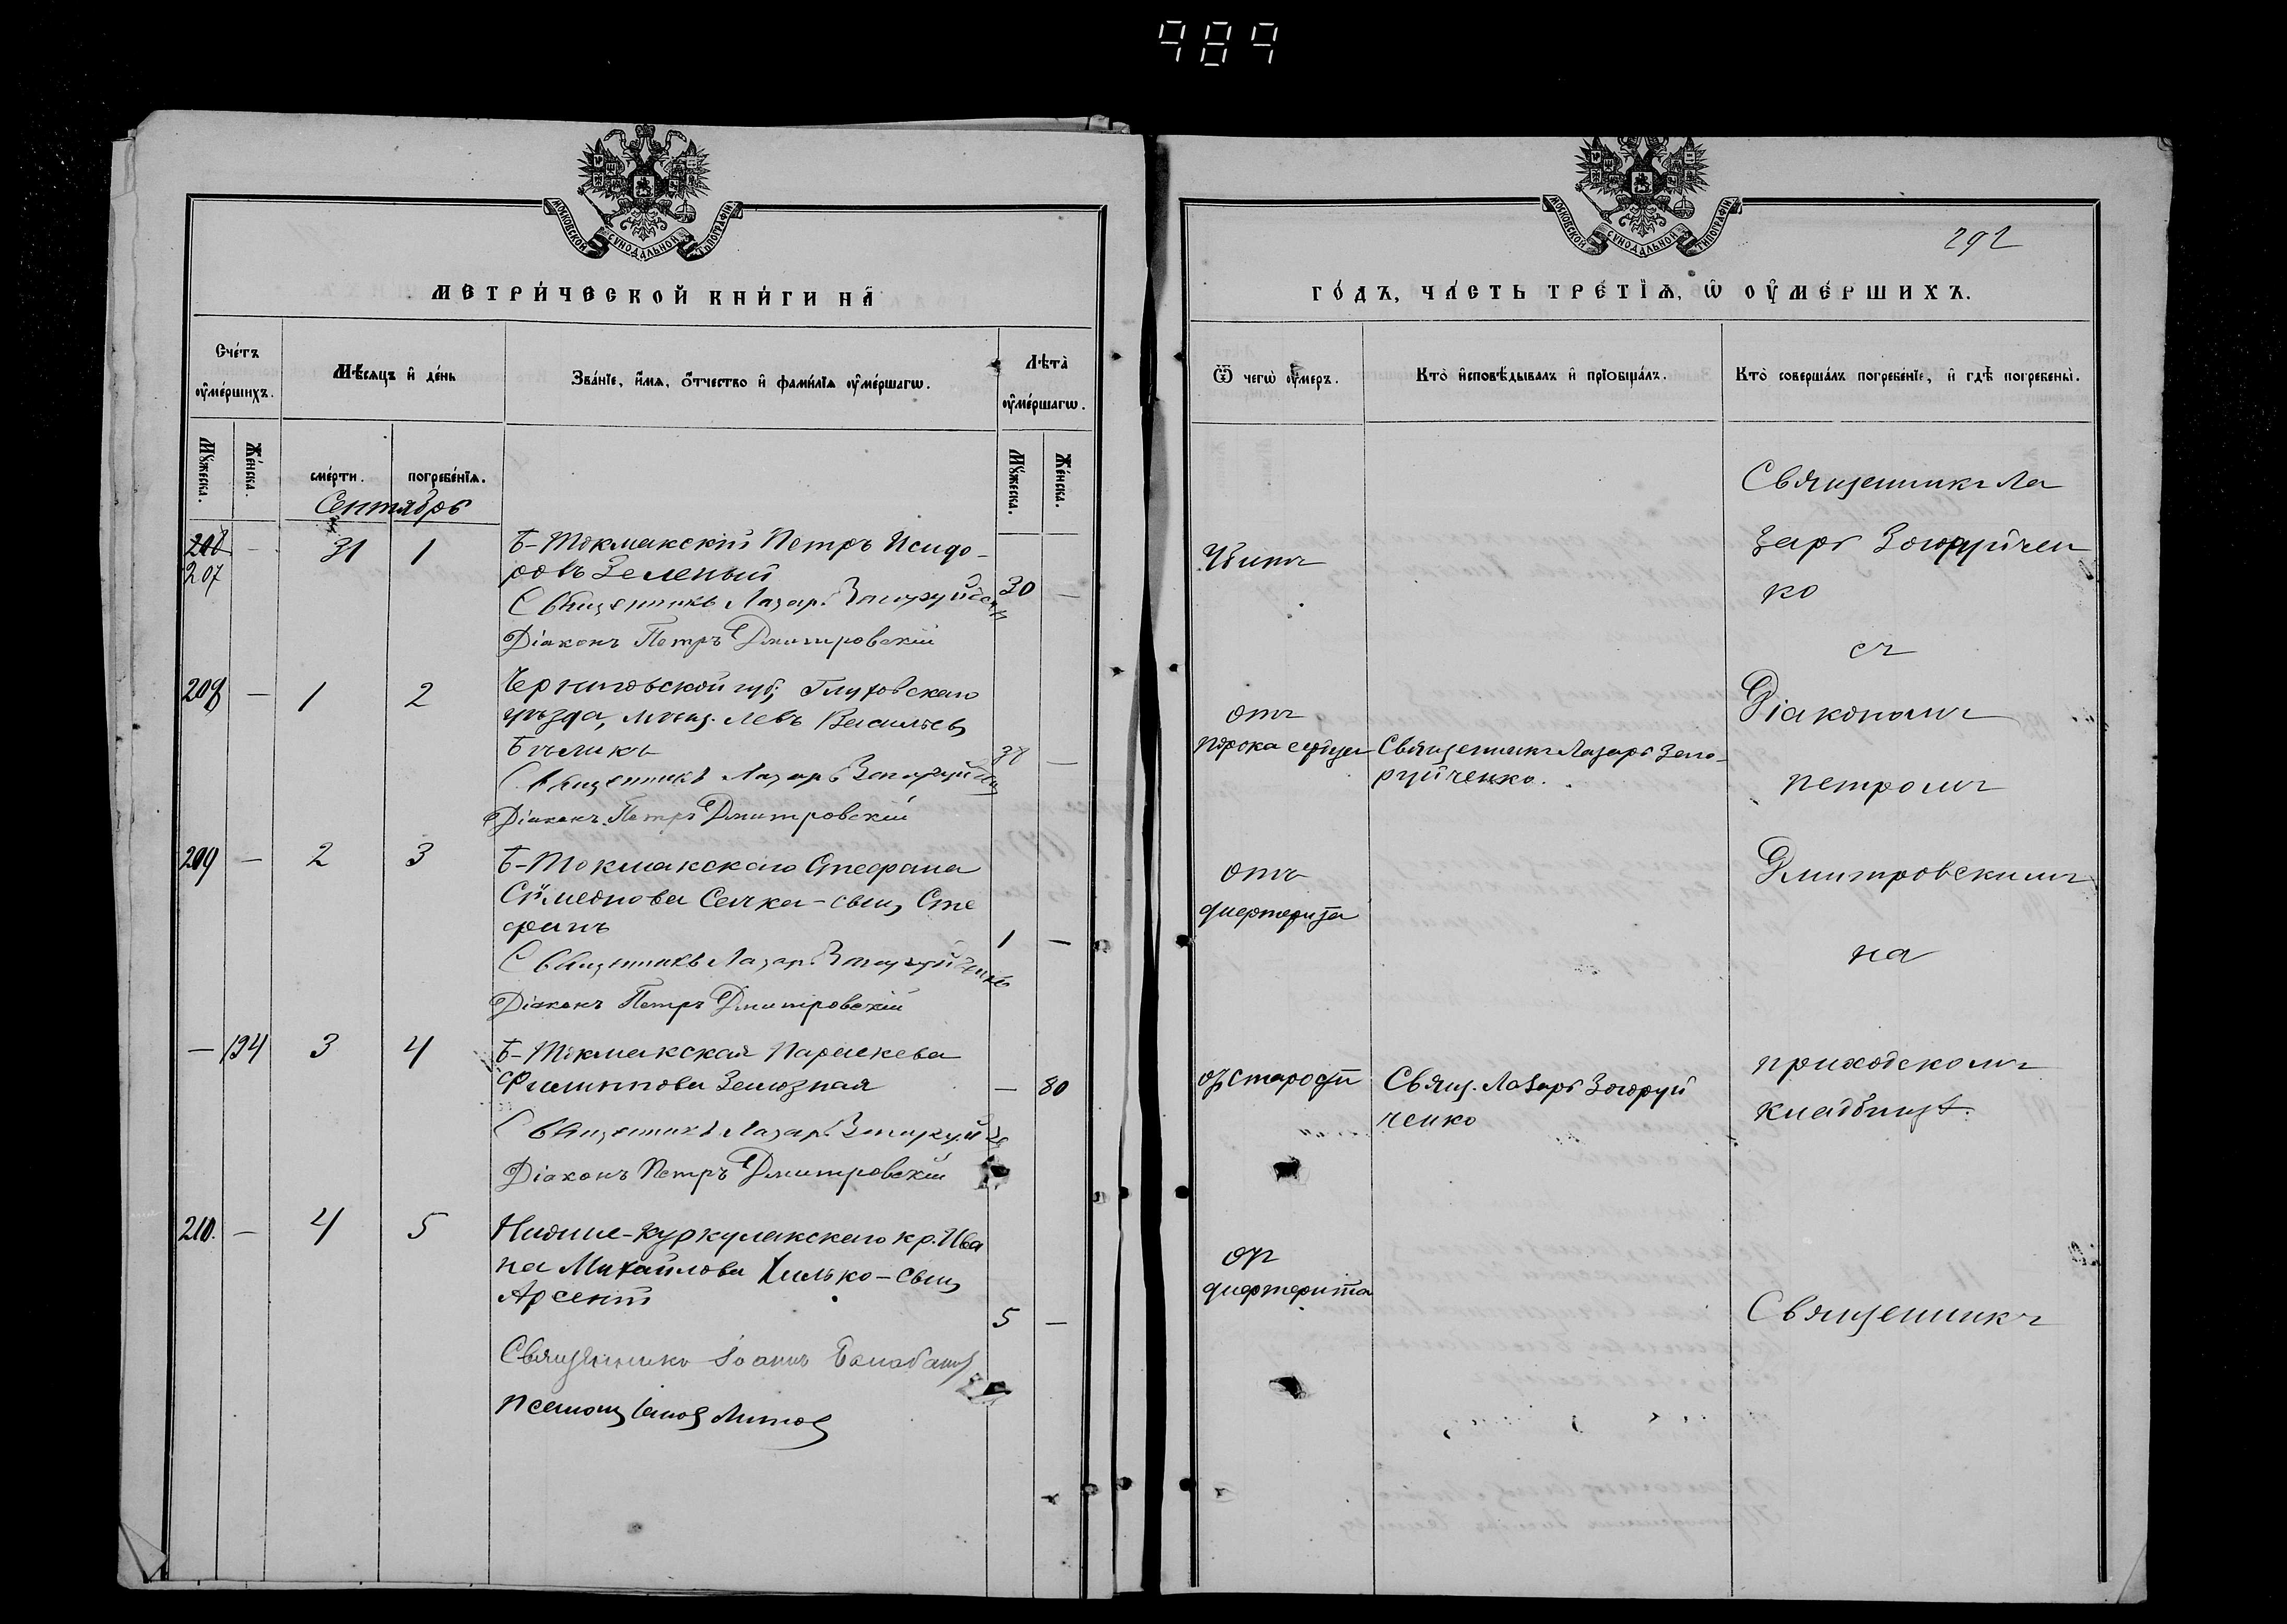 989
МОСКОВСКОЙ СУНОДАЛЬНОЙ ТИПОГРАФІИ
МЕТРИ́ЧЕСКОЙ КНИ́ГИ НА̀
Сче́тъ оу҆ме́ршихъ.
Мѣ́сяцъ и҆ де́нь
Зва́нїе, и҆́мѧ, ѻ҆́тчество и҆ фами́лїѧ оу҆ме́ршагѡ.
Лѣ́та оу҆ме́ршагѡ.
Мꙋ́жеска.
Же́нска.
сме́рти.
погребе́нїѧ.
Мꙋ́жеска.
Же́нска.
Сентябрь
207
-
31
1
Б-Токмакскій Петръ Исидо-
ровъ Зеленый
30
-
Священникъ Лазарь
Діаконъ Петръ Дмитровскій
208
-
1
2
Черниговской губ; Глуховскаго
уѣзда, мѣщ. Левъ Васильевъ
Бѣликъ
38
-
Священникъ Лазарь
Діаконъ Петръ Дмитровскій
209
-
2
3
Б-Токмакскаго Стефана
Сѵмеонова Сачка-сынъ Сте
фанъ
1
-
Священникъ Лазарь
Діаконъ Петръ Дмитровскій
-
194
3
4
Б-Токмакская Параскева
Филиппова
-
80
Священникъ Лазарь
Діаконъ Петръ Дмитровскій
210.
-
4
5
Нижне-Куркулакскаго кр. Ива
на Михайлова Хилько-сынъ
Арсеній
5
-
Священникъ Іоаннъ
МОСКОВСКОЙ СУНОДАЛЬНОЙ ТИПОГРАФІИ
292
ГО́ДЪ, ЧА́СТЬ ТРЕ́ТІѦ, Ѡ҆ ОУ҆МЕ́РШИХЪ.
Ѿ чегѡ̀ оу҆́меръ.
Кто̀ и҆сповѣ́дывалъ и҆ прїѡбща́лъ.
Кто̀ соверша́лъ погребе́нїе, и҆ гдѣ̀ погребены̀.
Священникъ Ла
зарь Загоруйчен
ко
съ
Діакономъ
Петромъ
Дмитровскимъ
на
приходскомъ
кладбищѣ.
отъ
порока сердца
Священникъ Лазарь Заго-
руйченко.
отъ
дифтерита
отъ старости
Свящ. Лазарь Загоруй
ченко
отъ
дифтерита
Священникъ